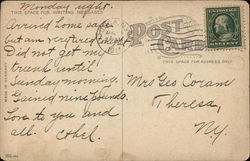 Monday night.
THIS SPACE FOR WRITING MESSAGES
Post
Card
Arrived home safe
but am very tired
Did not get my
trunk until
Sunday morning.
Gained nine pounds.
Love to you and
all. Ethel.
THIS SPACE FOR ADDRESS ONLY
Mrs Geo Coran
Theresa,
NY.